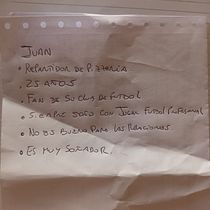 JUAN
• REPARTIDOR DE PIZZERÍA
• 25 AÑOS
• FAN DE SU CLUB DE FUTBOL
• SIEMPRE SOÑO CON JUGAR FUTBOL PROFESIONAL
• NO ES BUENO PARA LAS RELACIONES.
• ES MUY SOÑADOR.